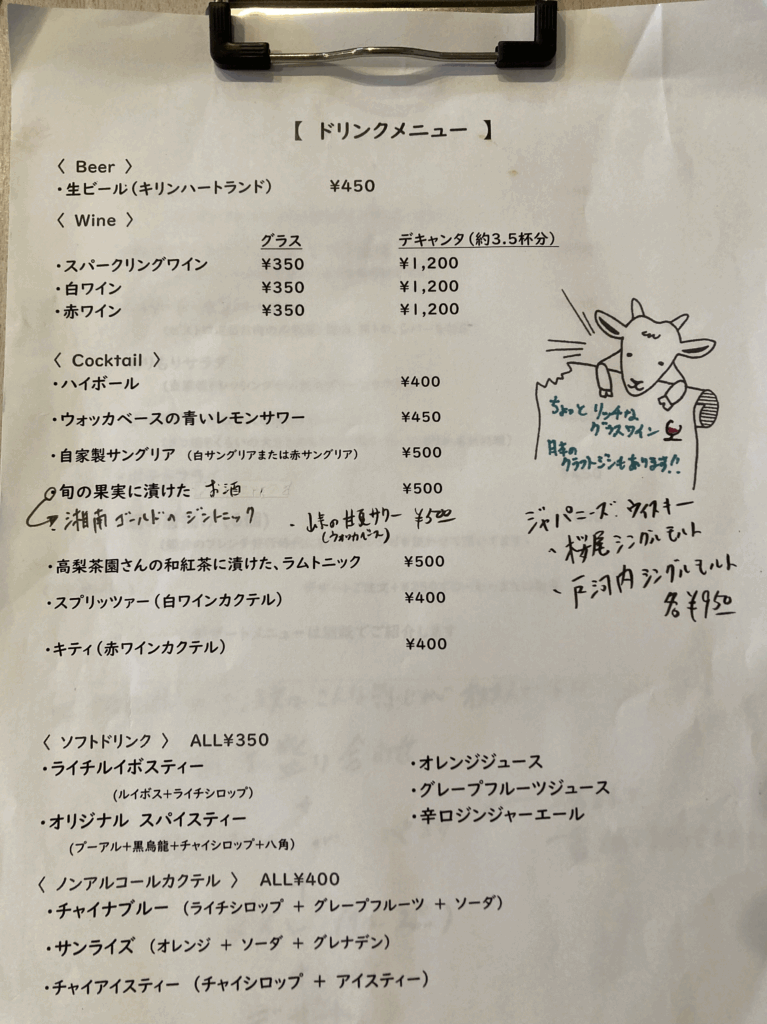 【 ドリンクメニュー 】
〈 Beer 〉
・生ビール(キリンハートランド) ¥450
〈 Wine 〉
グラス デキャンタ(約3.5杯分)
・スパークリングワイン ¥350 ¥1,200
・白ワイン ¥350 ¥1,200
・赤ワイン ¥350 ¥1,200
〈 Cocktail 〉
・ハイボール ¥400
・ウォッカベースの青いレモンサワー ¥450
・自家製サングリア (白サングリアまたは赤サングリア) ¥500
旬の果実に漬けた お酒 ¥500
湘南ゴールドのジントニック ・山本の甘夏サワー ¥500
(ウォッカベース)
・高梨茶園さんの和紅茶に漬けた、ラムトニック ¥500
・スプリッツァー(白ワインカクテル) ¥400
・キティ(赤ワインカクテル) ¥400
ちょっと リッチな
グラスワイン
日本の
クラフトジンもあります!!
ジャパニーズウイスキー
、桜尾シングルモルト
、戸河内シングルモルト
各¥950
〈 ソフトドリンク 〉 ALL¥350
・ライチルイボスティー
(ルイボス+ライチシロップ)
・オリジナル スパイスティー
(プーアル+黒烏龍+チャイシロップ+八角)
・オレンジジュース
・グレープフルーツジュース
・辛口ジンジャーエール
〈 ノンアルコールカクテル 〉 ALL¥400
・チャイナブルー (ライチシロップ + グレープフルーツ + ソーダ)
・サンライズ (オレンジ + ソーダ + グレナデン)
・チャイアイスティー (チャイシロップ + アイスティー)